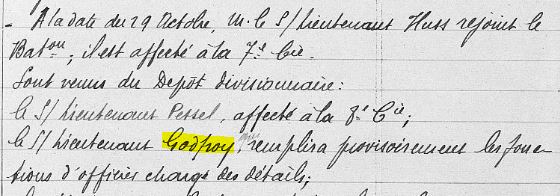 - A la date du 29 Octobre, M. le S/Lieutenant Huss rejoint le
Bat^on; il est affecté à la 7^e Cie.
Sont venus du Dépôt divisionnaire:
le S/Lieutenant Pessel, affecté à la 8^e C^ie;
le S/Lieutenant Godfroy remplira provisoirement les fonc-
tions d'officier chargé des détails;